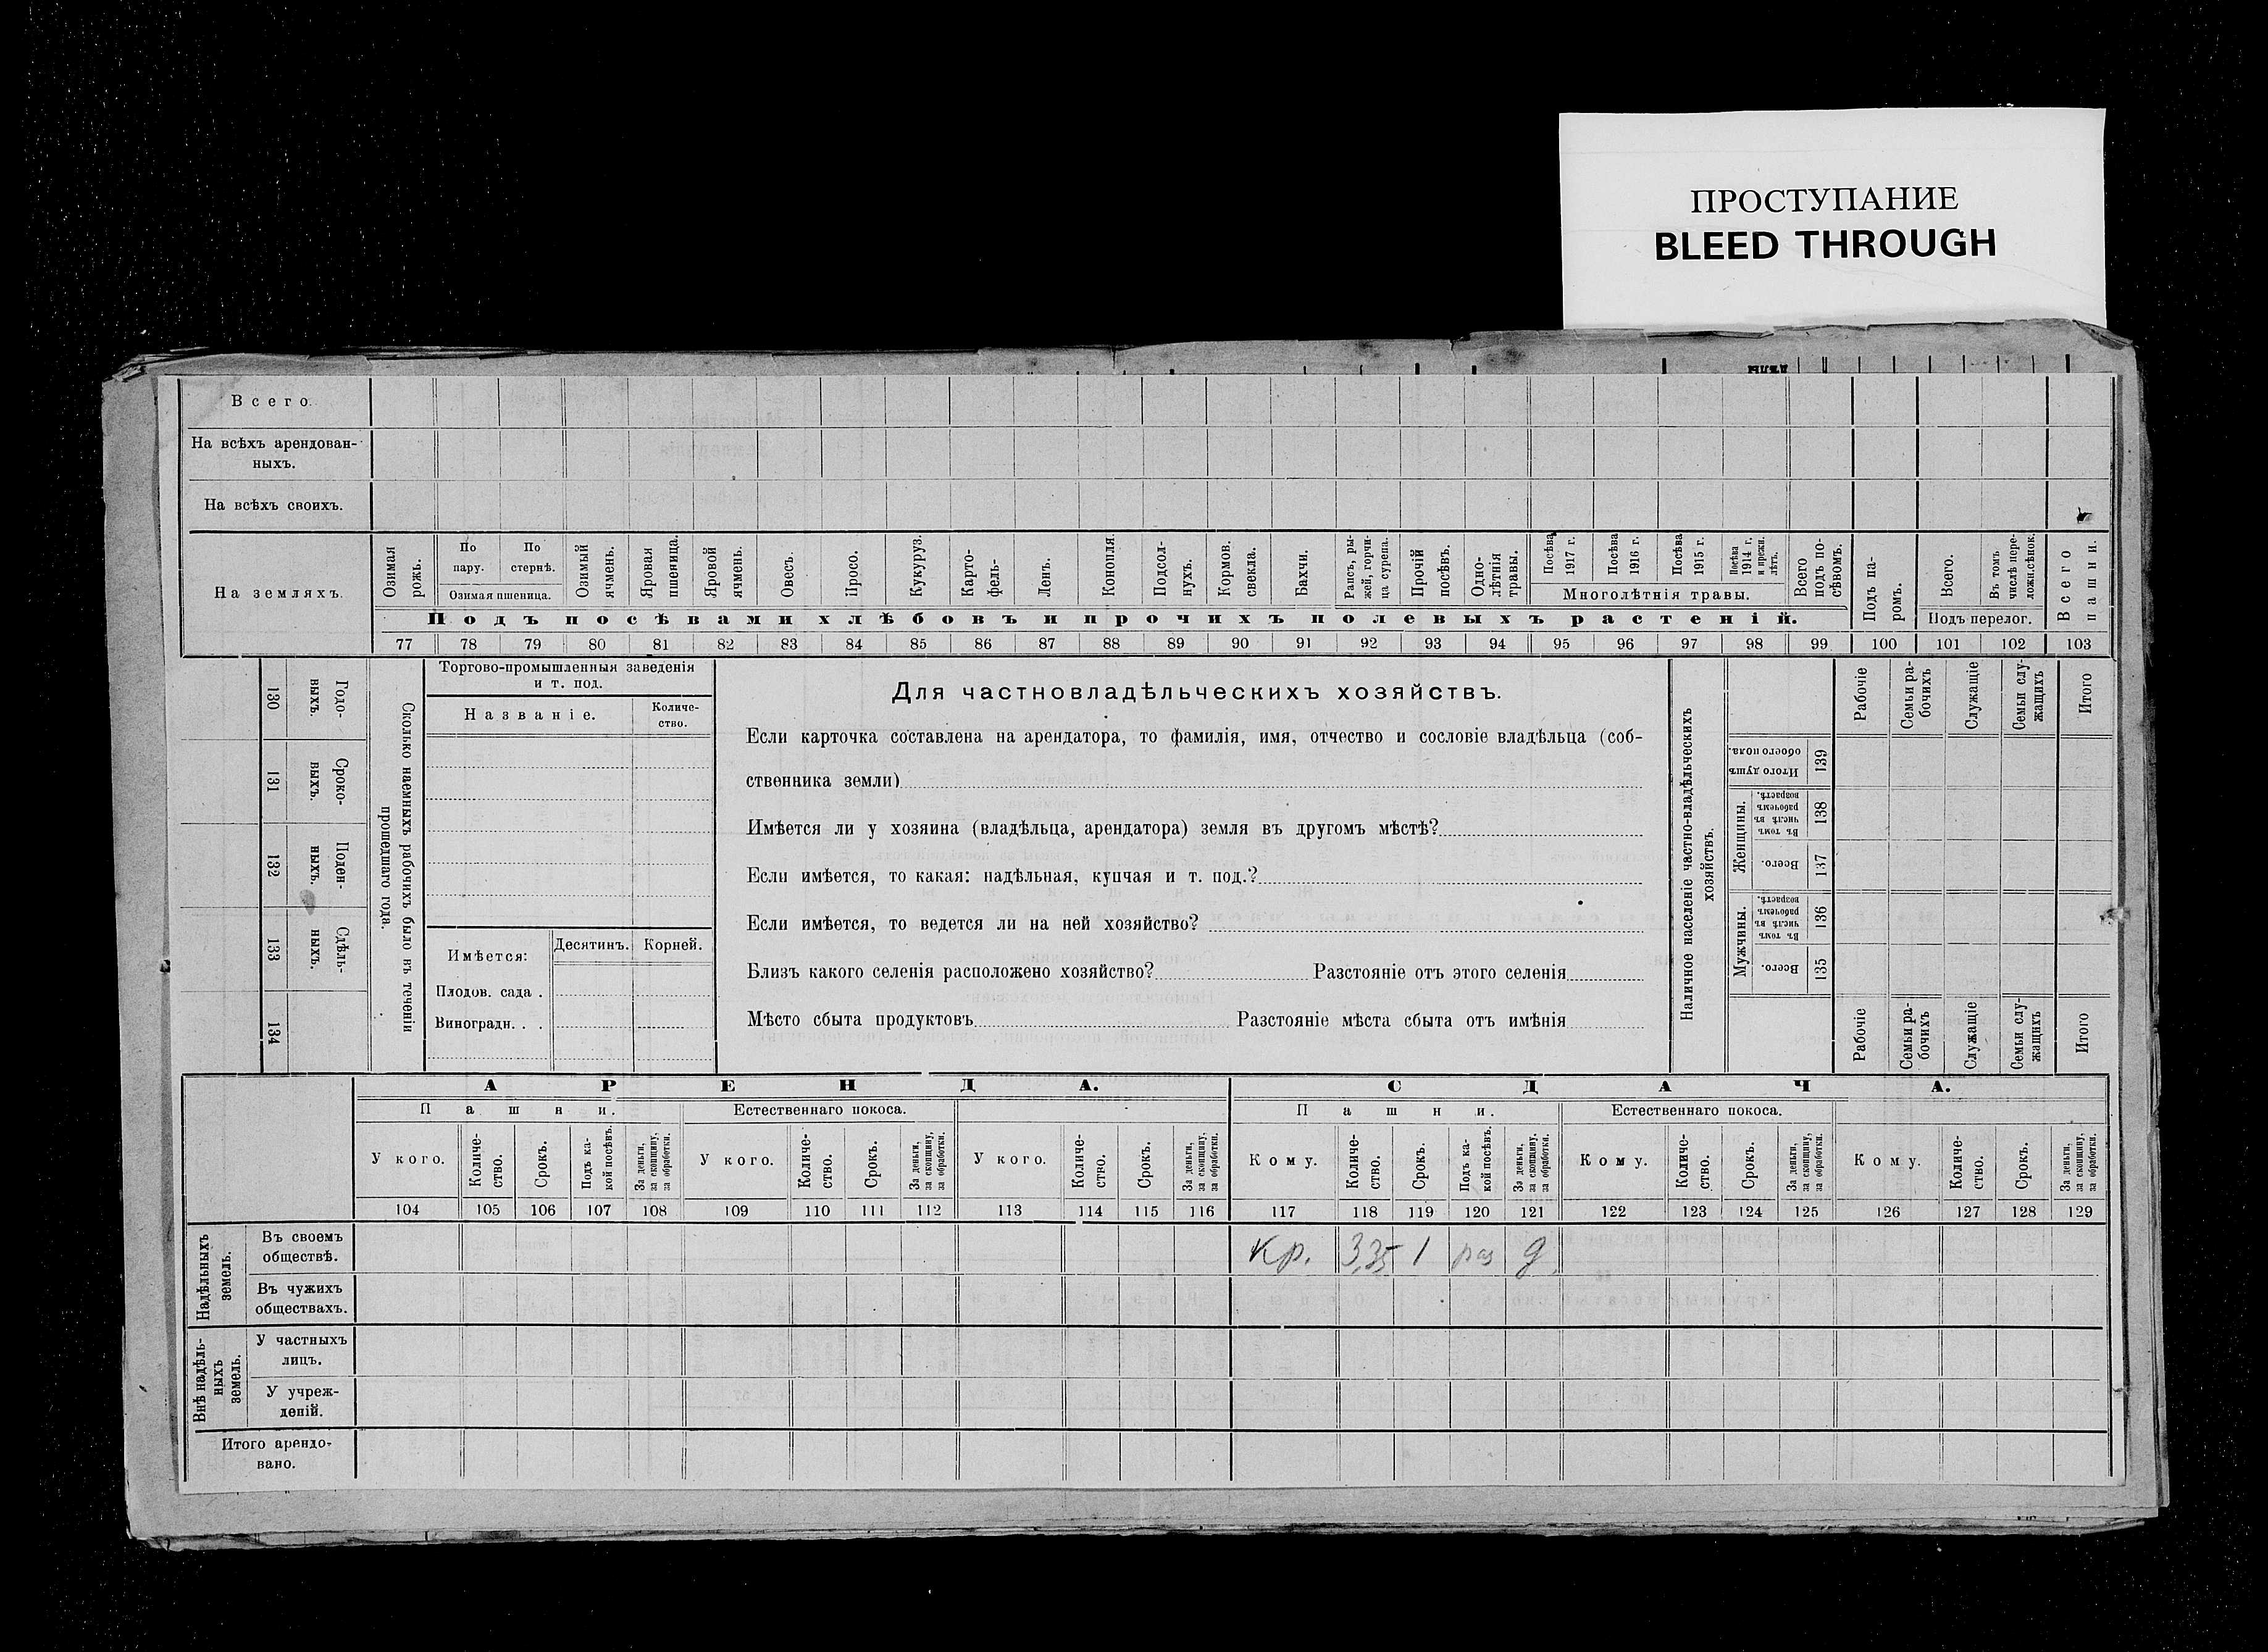 ПРОСТУПАНИЕ
BLEED THROUGH
Всего.
На всѣхъ арендован-
ныхъ.
На всѣхъ своихъ.
На земляхъ.
Озимая рожь.
По пару.
По стернѣ.
Озимая пшеница.
Озимый ячмень.
Яровая пшеница.
Яровой ячмень.
Овесъ.
Просо.
Кукуруз.
Карто-
фель-
Ленъ.
Конопля.
Подсол-
нухъ.
Кормов. свекла.
Бахчи.
Рапсъ, ры-
жей, горчи-
ца сурепа.
Прочій посѣвъ.
Одно-
лѣтнія травы.
Посѣва 1917 г.
Посѣва 1916 г.
Посѣва 1915 г.
Посѣва 1914 г. и прежн. лѣтъ.
Многолѣтнія травы.
Всего подъ по-
сѣвомъ.
Подъ па-
ромъ.
Всего.
Въ томъ числѣ пере-
ложн. сѣнок.
Подъ перелог.
Всего пашни.
Подъ посѣвами хлѣбовъ и прочихъ полевыхъ растеній.
77 78 79 80 81 82 83 84 85 86 87 88 89 90 91 92 93 94 95 96 97 98 99 100 101 102 103
130 Годо-
выхъ.
131 Сроко-
выхъ.
132 Поден-
ныхъ.
133 Сдѣль-
ныхъ.
134
Сколько наемныхъ рабочихъ было въ теченіи
прошедшаго года.
Торгово-промышленныя заведенія
и т. под.
Названіе.
Количе-
ство.
Имѣется:
Десятинъ.
Корней.
Плодов. сада .
Виноградн. . .
Для частновладѣльческихъ хозяйствъ.
Если карточка составлена на арендатора, то фамилія, имя, отчество и сословіе владѣльца (соб-
ственника земли)
Имѣется ли у хозяина (владѣльца, арендатора) земля въ другомъ мѣстѣ?
Если имѣется, то какая: надѣльная, купчая и т. под.?
Если имѣется, то ведется ли на ней хозяйство?
Близъ какого селенія расположено хозяйство? Разстояніе отъ этого селенія
Мѣсто сбыта продуктовъ Разстояніе мѣста сбыта отъ имѣнія
Наличное населеніе частно-владѣльческихъ
хозяйствъ.
Рабочіе
Семьи ра-
бочихъ
Служащіе
Семьи слу-
жащихъ
Итого
Итого душъ обоего пола. 139
Женщины.
Въ томъ числѣ въ рабочемъ возрастѣ. 138
Всего. 137
Мужчины.
Въ томъ числѣ въ рабочемъ возрастѣ. 136
Всего. 135
Рабочіе
Семьи ра-
бочихъ
Служащіе
Семьи слу-
жащихъ
Итого
АРЕНДА.
СДАЧА.
Пашни.
Естественнаго покоса.
Пашни.
Естественнаго покоса.
У кого.
Количе-
ство.
Срокъ.
Подъ ка-
кой посѣвъ.
За деньги, за скопщину, за обработки.
У кого.
Количе-
ство.
Срокъ.
За деньги, за скопщину, за обработки.
У кого.
Количе-
ство.
Срокъ.
За деньги, за скопщину, за обработки.
Кому.
Количе-
ство.
Срокъ.
Подъ ка-
кой посѣвъ.
За деньги, за скопщину, за обработки.
Кому.
Количе-
ство.
Срокъ.
За деньги, за скопщину, за обработки.
Кому.
Количе-
ство.
Срокъ.
За деньги, за скопщину, за обработки.
104 105 106 107 108 109 110 111 112 113 114 115 116 117 118 119 120 121 122 123 124 125 126 127 128 129
Надѣльныхъ
земель.
Въ своемъ
обществѣ.
кр. 3,35 1 раз д.
Въ чужихъ
обществахъ.
Внѣ надѣль-
ныхъ
земель.
У частныхъ
лицъ.
У учреж-
деній.
Итого арендо-
вано.